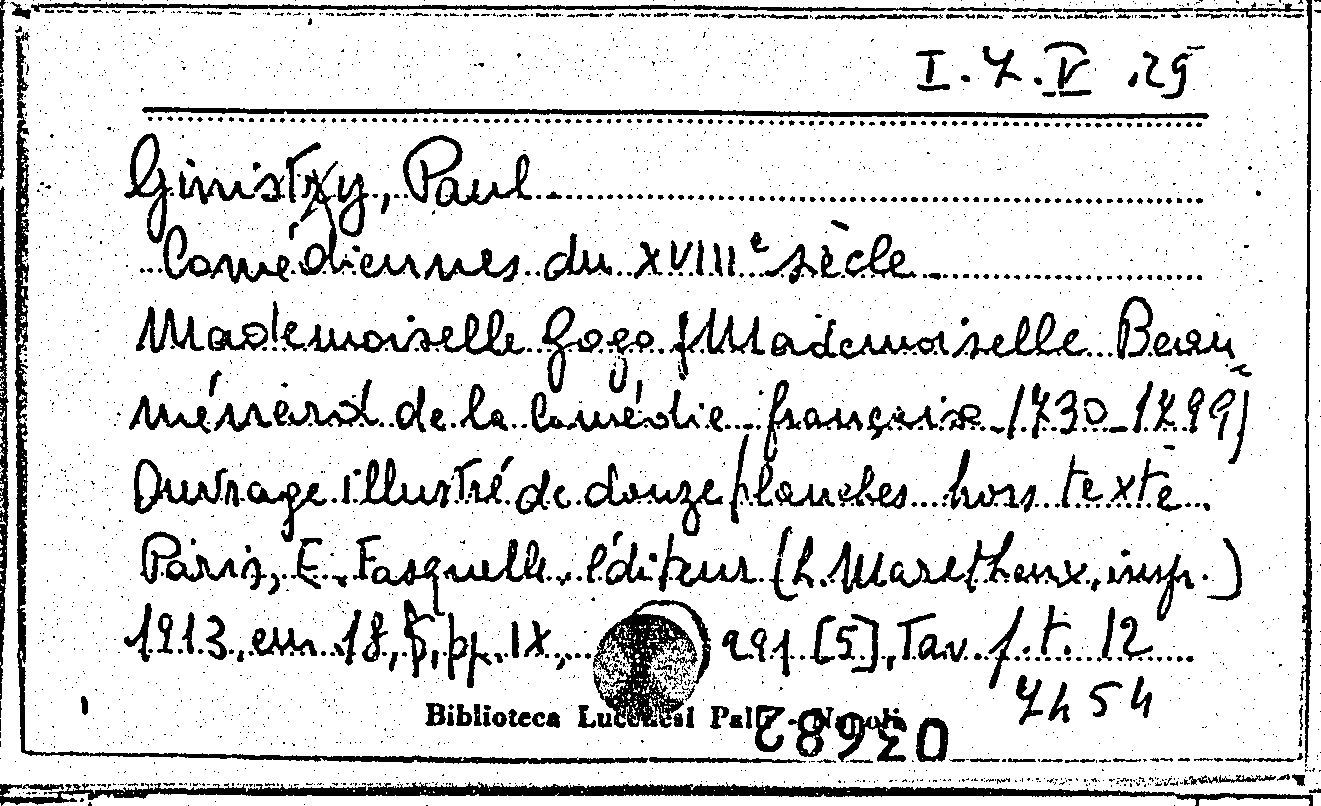 I. 7. IV . 29
Ginisty, Paul
Comédiennes du XVIIIe sècle
Mademoiselle Gogo (Mademoiselle Beau
ménard de la Comédie française 1730-1799)
Ouvrage illustré de douze planches hors texte
Paris, E. Fasquelle, éditeur (L. Maretheux, imp.)
1913, cm. 18,5, pp. IX, 291 [5], Tav. f.t. 12
7454
Biblioteca Lucchesi Palli - Napoli